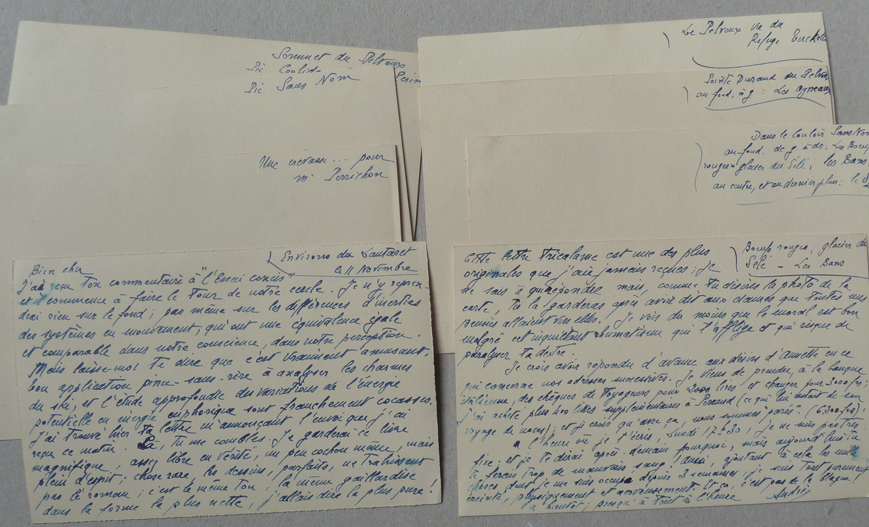 Sommet du Pelvoux
Pic Coolidge
Pic Sans Nom
Une crevasse... pour
Mr Perrichon
Environs du Lautaret
le 11 Novembre
Bien cher
J'ai reçu ton commentaire à "l'Essai concis"
et commence à faire le tour de notre cercle. Je n'y
drai rien sur le fond; pas même sur les différences d'inerties
des systèmes en mouvement, qui ont une équivalence égale
et comparable dans notre conscience, dans notre perception.
Mais laisse-moi te dire que c'est vraiment amusant.
Ton application pince-sans-rire à analyser les charmes
du ski, et l'étude approfondie des variations de l'énergie
potentielle en énergie euphorique sont franchement cocasses.
J'ai trouvé hier ta lettre m'annonçant l'envoi que j'ai
reçu ce matin. Là, tu me combles. Je garderai ce livre
magnifique, assez libre en vérité, un peu cochon même, mais
plein d'esprit; chose rare, les dessins, parfaits, ne trahissent
pas le roman; c'est le même ton, la même gaillardise
dans la forme la plus nette, j'allais dire la plus pure!
Le Pelvoux vu du
Refuge
Pointe Durand du Pelvoux
au fond, à g: Les Agneaux
Dans le Couloir Sans Nom
au fond, de g. à dr: Les Boeufs
rouges, glacier du Sélé, les Bans
au centre, et au dernier plan: le
Boeufs rouges, glacier du
Sélé - Les Bans
Cette lettre tricolore est une des plus
originales que j'aie jamais reçues; je
ne sais à qui mais, comme tu disais, la photo de la
carte, tu la garderas après avoir dit aux dames que toutes mes
pensées allaient vers elles. Je vois du moins que le moral est bon
malgré cet inquiétant rhumatisme qui t'afflige et qui risque de
paralyser ta dextre.
Je crois avoir répondu d'avance aux désirs d'Annette en ce
qui concerne nos adresses successives. Je viens de prendre, à la Banque
italienne, des chèques de voyageurs pour lires et changer pour
j'ai acheté plus 400 lires supplémentaires à (ce qui lui restait de son
voyage de noces); et je crois qu'avec ça, nous sommes parés.
à l'heure où je t'écris, Lundi 17h30, je ne suis pas très
fixé; et je te dirai après-demain pourquoi, mais aujourd'hui tu
te ferais trop de mauvais sang! Aussi, ajoutant à cela les mille
choses dont je me suis occupé depuis 3 semaines, je suis tout simplement
éreinté, physiquement et nerveusement. Et ça, c'est pas de la blague!
à bientôt, presqu'à tout à l'heure
André